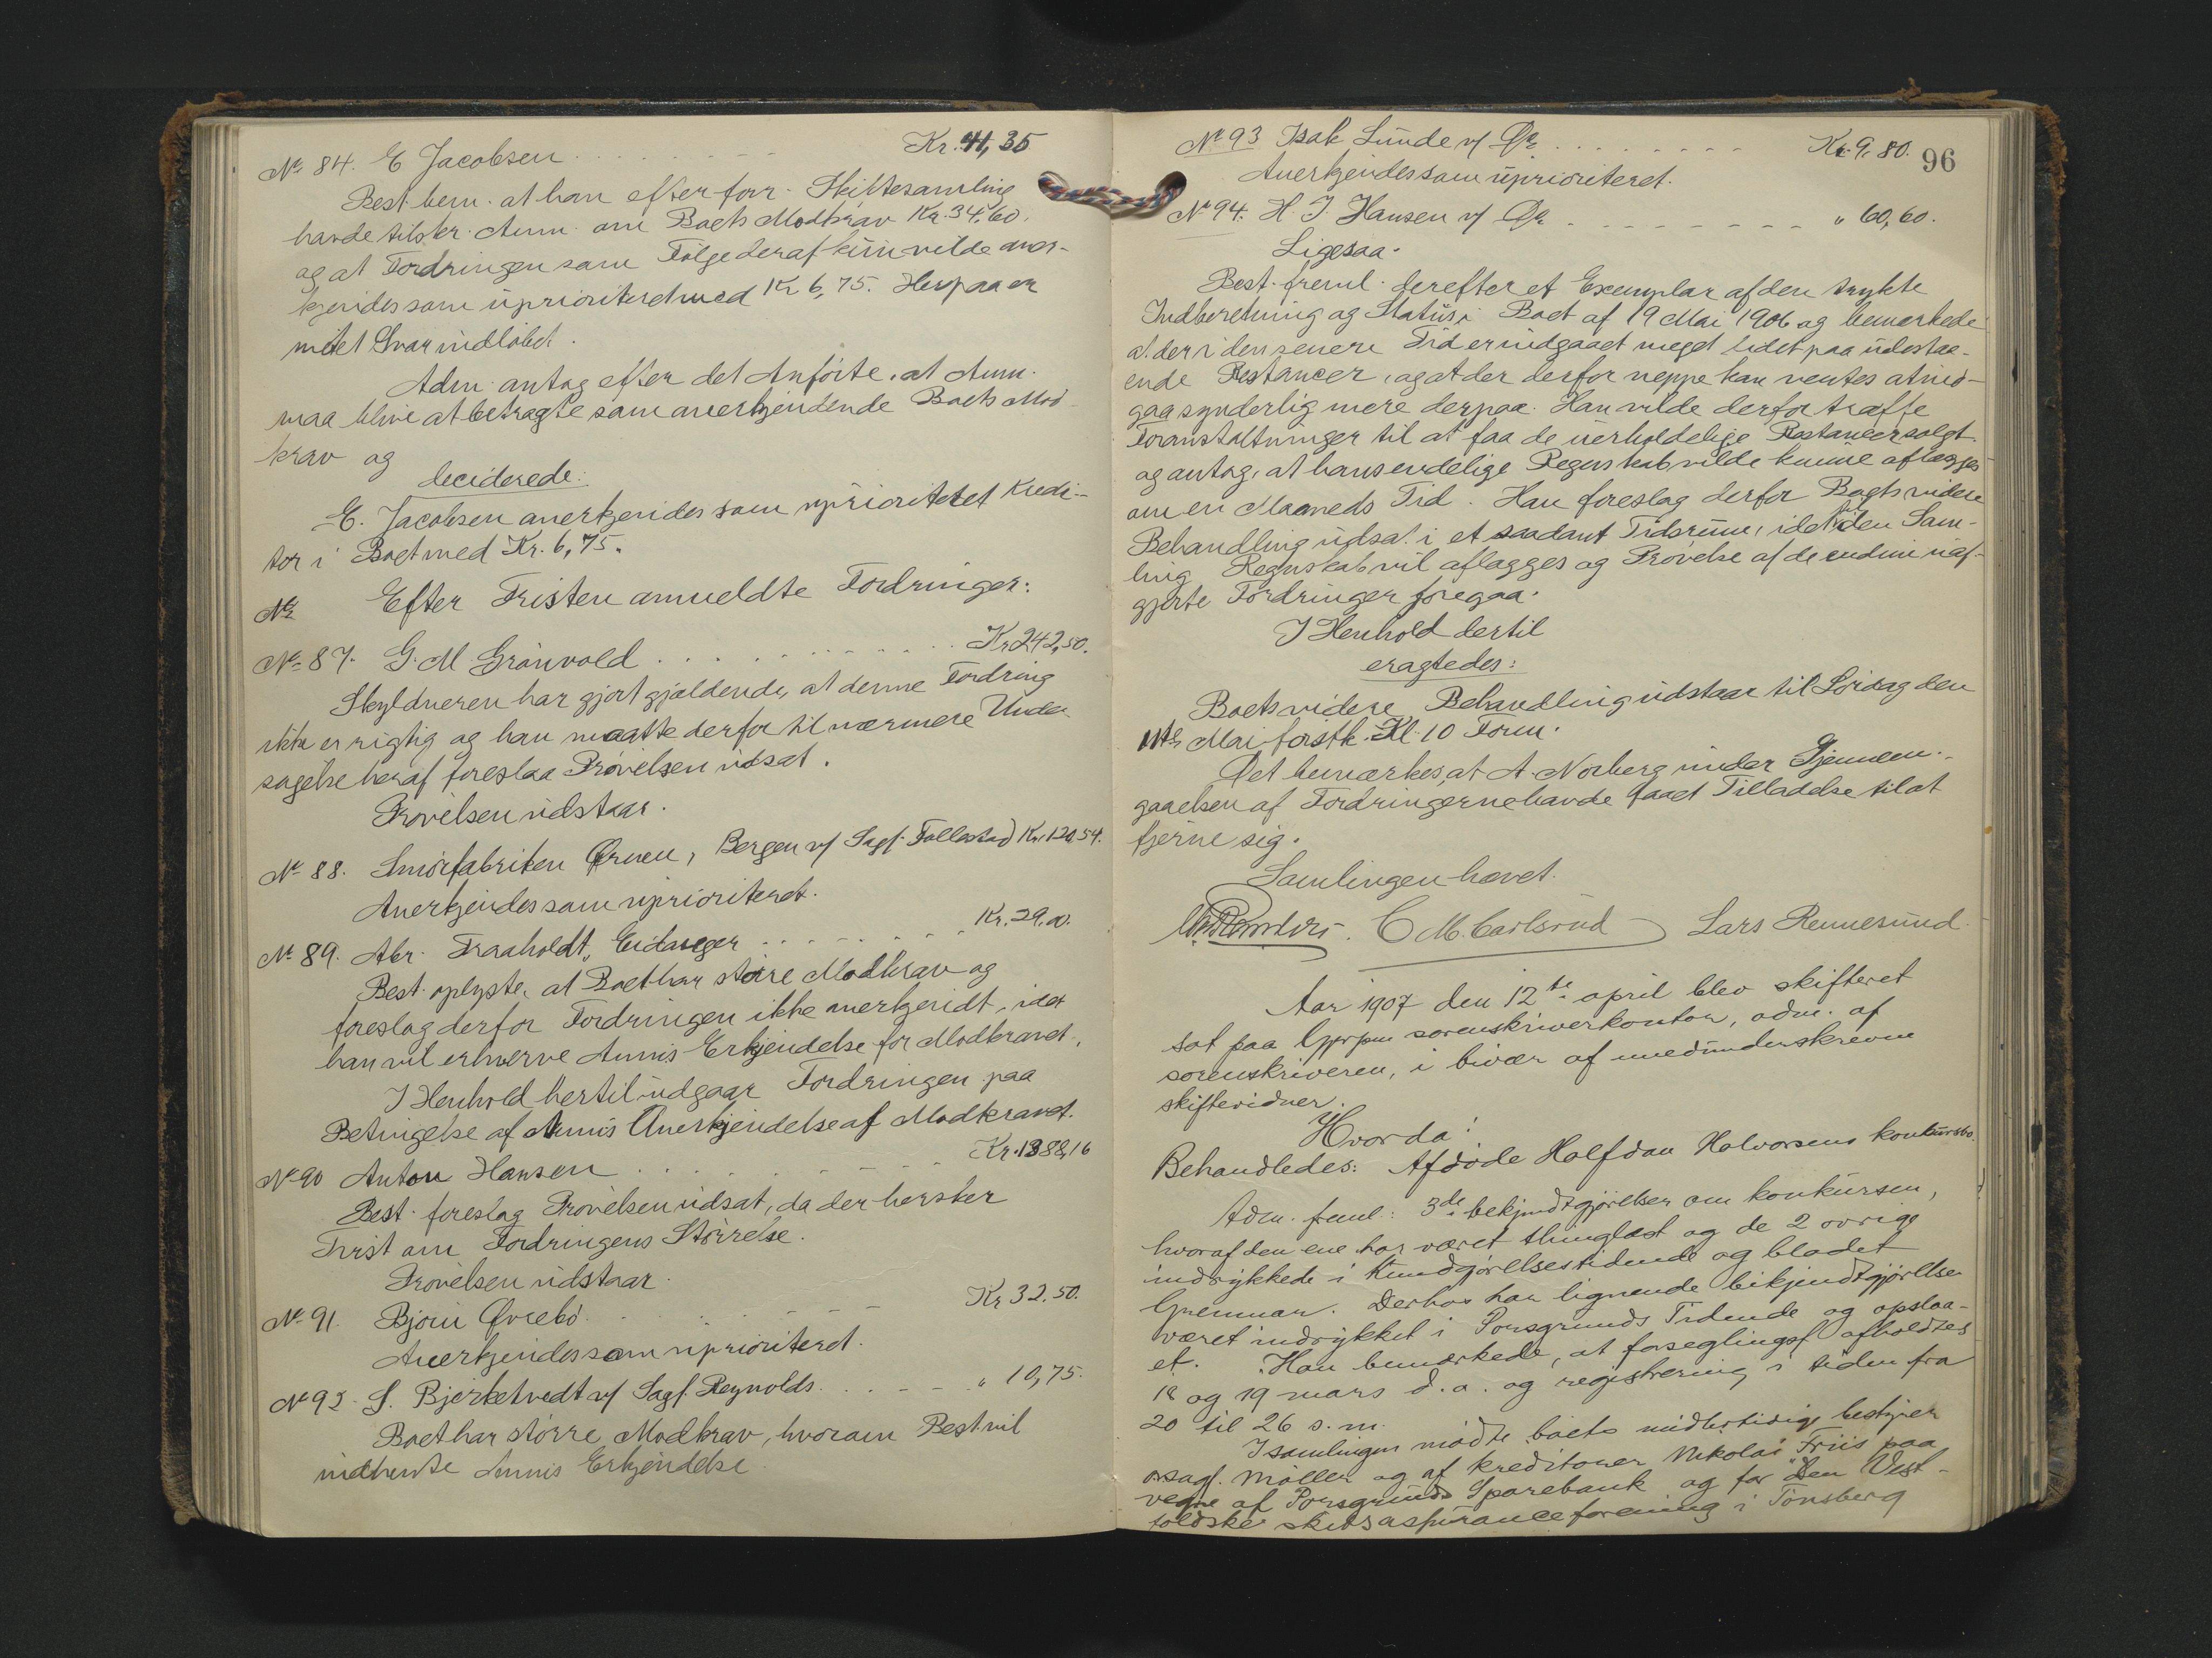 No 84. E Jacobsen . . . . . . . Kr. 41,35
Best. bem. at han efter forr. Skiftesamling
havde tilskr. Anm. om Boets Modkrav Kr. 34,60.
og at Fordringen som Følge deraf kun vilde aner-
kjendes som uprioriteret med Kr 6,75. Herpaa er
intet Svar indløbet.
Adm. antog efter det Anførte, at Anm.
maa blive at betragte som anerkjendende Boets Mod-
krav og
deciderede:
E. Jacobsen anerkjendes som uprioritetet Kredi-
tor i Boet med Kr. 6,75.
No Efter Fristen anmeldte Fordringer:
No 87. G. M. Grønvold . . . . . . . Kr 242,50.
Skyldneren har gjort gjældende, at denne Fordring
ikke er rigtig og han maatte derfor til nærmere Under
søgelse heraf foreslaa Prøvelsen udsat.
Prøvelsen udstaar.
No 88. Smørfabriken Ørnen, Bergen v/ Sagf. Follestad Kr. 120,54.
Anerkjendes som uprioriteret.
No 89. Abr. Traaholdt, Eidanger . . . . . . Kr. 29,00.
Best. oplyste, at Boet har større Modkrav og
foreslog derfor Fordringen ikke anerkjendt, idet
han vil erhverve Anm's Erkjendelse for Modkravet.
I Henhold hertil udgaar Fordringen paa
Betingelse af Anm's Anerkjendelse af Modkravet.
No 90 Anton Hansen . . . . . . . Kr. 1388,16
Best. foreslog Prøvelsen udsat, da der hersker
Tvist om Fordringens Størrelse.
Prøvelsen udstaar.
No 91. Bjørn Øvrebø . . . . . . Kr 32.50.
Anerkjendes som uprioriteret.
No 92. S. Bjerketvedt v/ Sagf. Reynolds . . . . . " 10,75.
Boet har større Modkrav, hvorom Best vil
indhente Anm's Erkjendelse.
No 93 Isak Lunde v/ Do . . . . . . . Kr. 9,80. 96
Anerkjendes som uprioriteret.
No 94. H. J. Hansen v/ Do . . . . . . . " 60,60.
Ligesaa.
Best. freml. derefter et Exemplar af den trykte
Indberetning og Status i Boet af 19 Mai 1906 og bemærkede
at der i den senere Tid er indgaaet meget lidet paa udestaa-
ende Restancer, og at der derfor neppe kan ventes at ind-
gaa synderlig mere derpaa. Han vilde derfor træffe
Foranstaltninger til at faa de uerholdelige Restancer solgt.
og antog, at hans endelige Regnskab vilde kunne aflægges
om en Maaneds Tid. Han foreslog derfor Boets videre
Behandling udsat i et saadant Tidsrum, idet i den Sam-
ling Regnskab vil aflægges og Prøvelse af de endnu uaf-
gjorte Fordringer foregaa.
I Henhold dertil
eragtedes:
Boets videre Behandling udstaar til Lørdag den
11te Mai førstk. Kl. 10 Form.
Det bemærkes, at A. Norberg under Gjennem-
gaaelsen af Fordringerne havde faaet Tilladelse til at
fjerne sig.
Samlingen hævet.
C M. Carlsrud Lars Rennesund.
Aar 1907 den 12te april blev skifteret
sat paa Gjerpen sorenskriverkontor, adm. af
sorenskriveren, i bivær af medunderskrevne
skiftevidner.
Hvorda:
Behandledes: Afdøde Halfdan Halvorsens konkursbo.
Adm. freml: 3de bekjendtgjørelser om konkursen,
hvoraf den ene har været thinglæst og de 2 øvrige
indrykkede i Kundgjørelsestidende og bladet
Grenmar. Derhos har lignende bekjendtgjørelse
været indrykket i Porsgrunds Tidende og opslaa-
et. Han bemærkede, at forseglingsf. afholdtes
18 og 19 mars d. a. og registrering i tiden fra
20 til 26 s. m.
I samlingen mødte boets midlertidige bestyrer
osagf. Møller og af kreditorer Nikolai Friis paa
vegne af Porsgrunds Sparebank og for Den Vest-
foldske skibsassuranceforening i Tønsberg